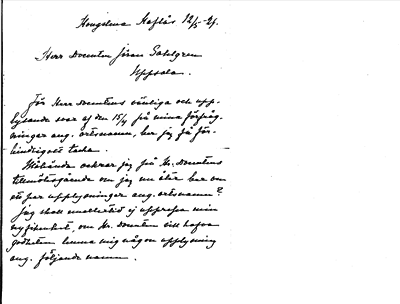 Kongelma Hafläs 12/5 - 21.
Herr Docenten Jöran Sahlgren
Uppsala.
För Herr docentens vänliga och upp-
lysande svar af den 15/4 på mina förfråg-
ningar ang. ortsnamn, ber jag få för-
bindligast tacka.
Måhända ockrar jag på Hr. Docentens
tillmötesgående om jag nu åter ber om
ett par upplysningar ang. ortsnamn?
Jag skall emellertid ej upprepa min
nyfikenhet, om Hr. Docenten vill hafva
godheten lemna mig någon upplysning
ang. följande namn.